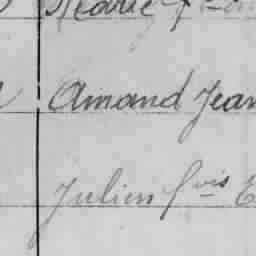 Marie
Amand Jean
Julien f^vis E